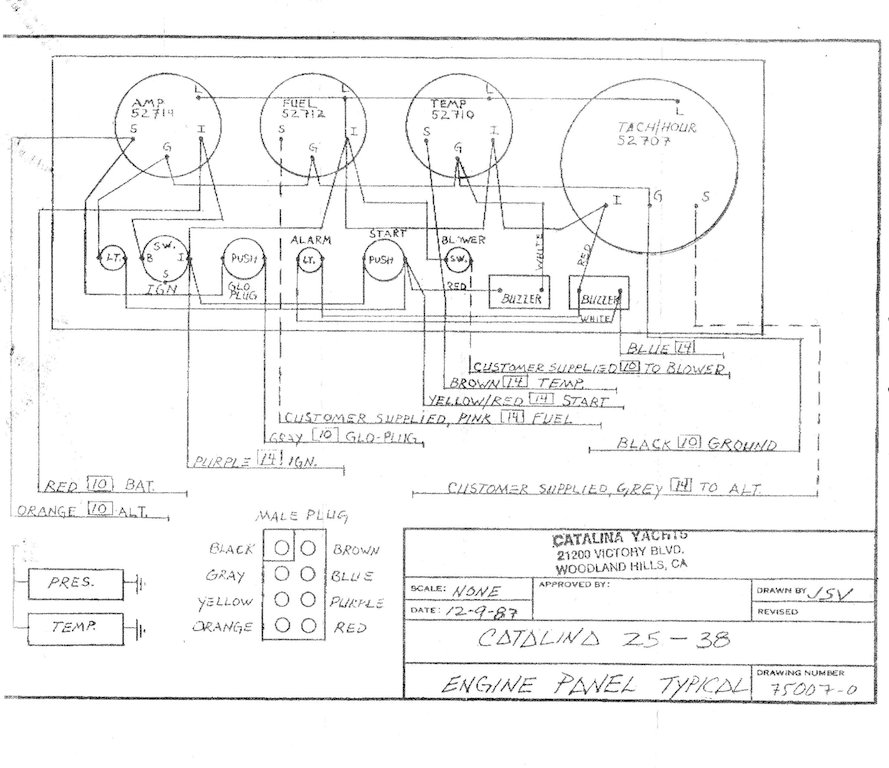 AMP.
52714
L
S
I
G
FUEL
52712
L
S
I
G
TEMP
52710
L
S
I
G
TACH/HOUR
52707
L
I
G
S
LT.
SW.
B
I
S
IGN
PUSH
GLO
PLUG
ALARM
LT.
START
PUSH
BLOWER
SW.
WHITE
RED
RED
BUZZER
BUZZER
WHITE
BLUE 14
CUSTOMER SUPPLIED 10 TO BLOWER
BROWN 14 TEMP.
YELLOW/RED 14 START
CUSTOMER SUPPLIED, PINK 14 FUEL
GRAY 10 GLO-PLUG
BLACK 10 GROUND
PURPLE 14 IGN.
RED 10 BAT.
CUSTOMER SUPPLIED, GREY 14 TO ALT.
ORANGE 10 ALT.
MALE PLUG
BLACK BROWN
GRAY BLUE
YELLOW PURPLE
ORANGE RED
PRES.
TEMP.
CATALINA YACHTS
21200 VICTORY BLVD.
WOODLAND HILLS, CA
SCALE: NONE
APPROVED BY:
DRAWN BY JSV
DATE: 12-9-87
REVISED
CATALINA 25-38
ENGINE PANEL TYPICAL
DRAWING NUMBER
75007-0